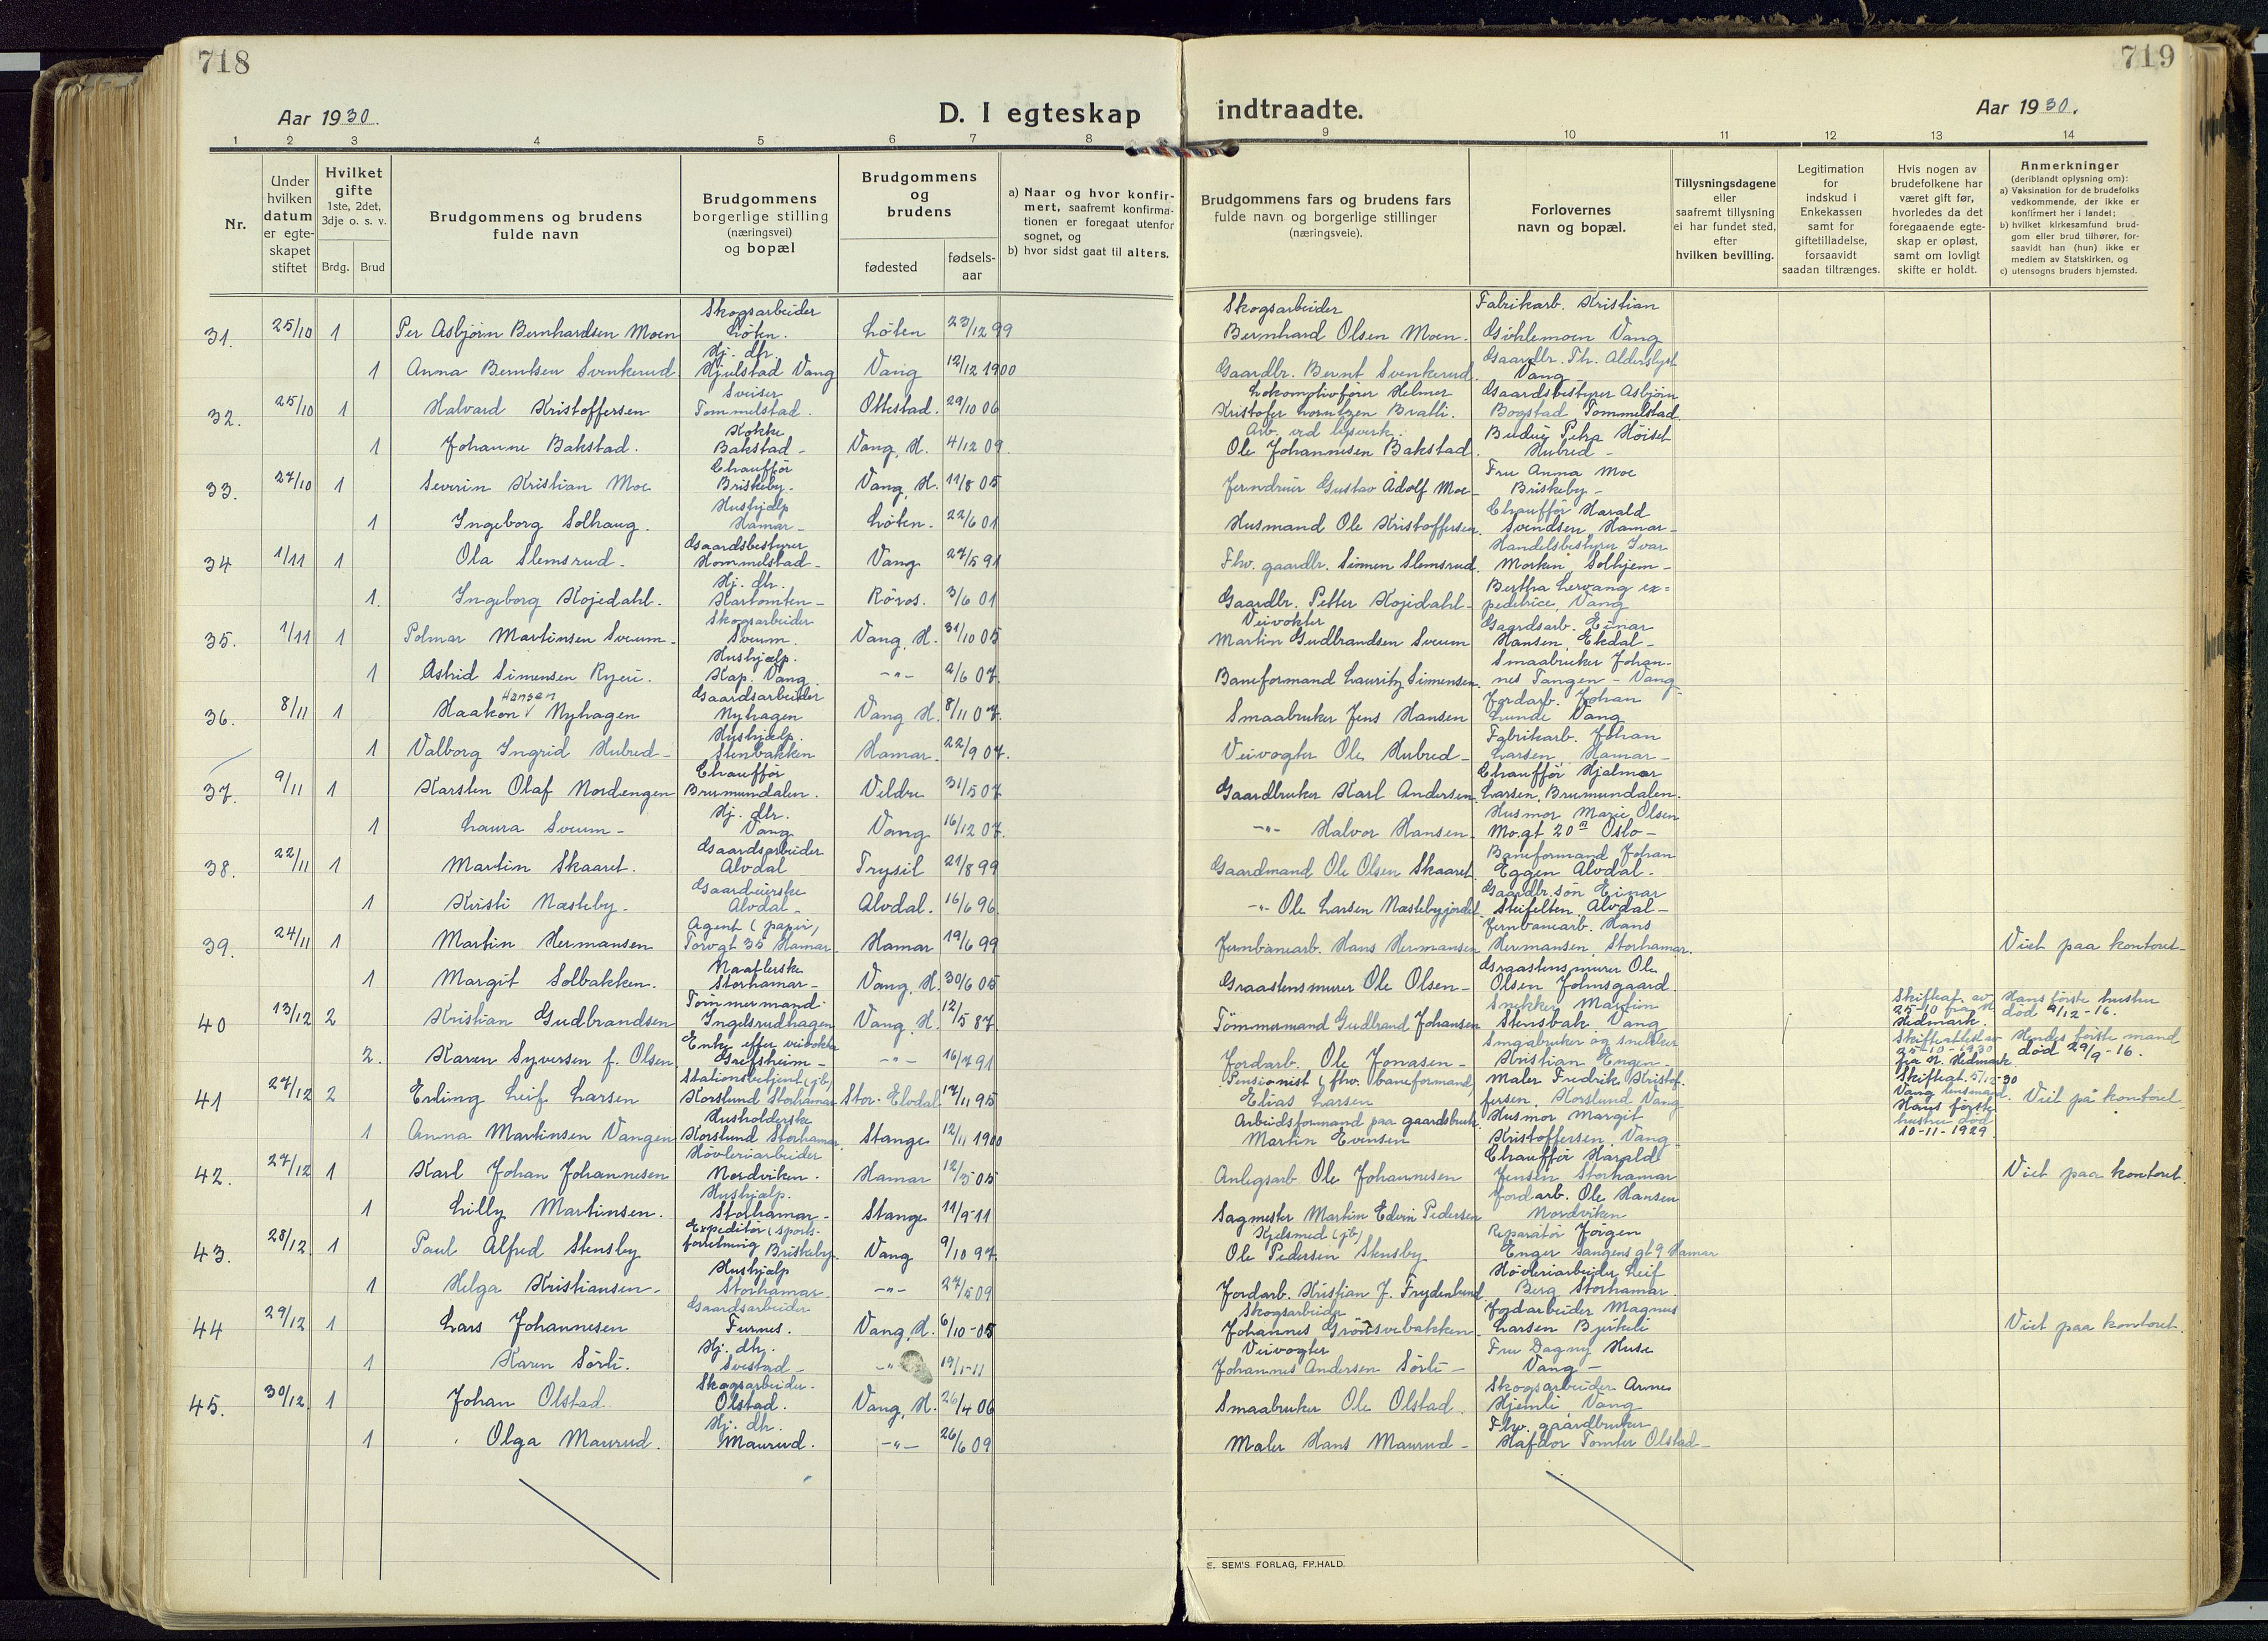 718
719
Aar 1930.
D. I egteskap
indtraadte.
Aar 1930.
1 2 3 4 5 6 7 8 9 10 11 12 13 14
Nr.
Under hvilken datum er egte-skapet stiftet
Hvilket gifte 1ste, 2det, 3dje o. s. v.
Brdg. Brud
Brudgommens og brudens fulde navn
Brudgommens borgerlige stilling (næringsvei) og bopæl
Brudgommens og brudens
fødested
fødsels-aar
a) Naar og hvor konfir-mert, saafremt konfirma-tionen er foregaat utenfor sognet, og
b) hvor sidst gaat til alters.
Brudgommens fars og brudens fars fulde navn og borgerlige stillinger (næringsveie).
Forlovernes navn og bopæl.
Tillysningsdagene eller saafremt tillysning ei har fundet sted, efter hvilken bevilling.
Legitimation for indskud i Enkekassen samt for giftetilladelse, forsaavidt saadan tiltrænges.
Hvis nogen av brudefolkene har været gift før, hvorledes da det foregaaende egte-skap er opløst, samt om lovligt skifte er holdt.
Anmerkninger (deriblandt oplysning om):
a) Vaksination for de brudefolks vedkommende, der ikke er konfirmert her i landet;
b) hvilket kirkesamfund brud-gom eller brud tilhører, for-saavidt han (hun) ikke er medlem av Statskirken, og
c) utensogns bruders hjemsted.
31. 25/10 1 Per Asbjörn Bernhardsen Moen Skogsarbeider Löten. Löten 23/12 99 Skogsarbeider Bernhard Olsen Moen. Fabrikarb. Kristian Göhlemoen Vang
1 Anna Berntsen Svenkerud Hj. dtr. Hjelstad Vang Vang 12/12 1900 Gaardbr. Bernt Svenkerud Gaardbr. Th. Alderslyst Vang
32. 25/10 1 Halvard Kristoffersen Sveiser Tommelstad. Ottestad. 29/10 06 Lokomotivförer Helmer Kristofer Lorntzen Bratli. Gaardsbestyrer Asbjörn Bogstad Tommelstad.
1 Johanne Bakstad. Kokke Bakstad - Vang, H. 4/12 09. Arb. ved lysverk. Ole Johannesen Bakstad. Budeie Petra Höiset Hubred -
33. 27/10 1 Severin Kristian Moe Chafför Briskeby. Vang, H. 11/8 05 Jerndreier Gustav Adolf Moe - Fru Anna Moe Briskeby -
1 Ingeborg Solhaug. Hushjælp Hamar - Löten. 22/6 01 Husmand Ole Kristoffersen. Chauffør Harald Svendsen, Hamar -
34 1/11 1 Ola Slemsrud. Gaardsbestyrer Hommelstad - Vang 27/5 91 Fhv. gaardbr. Simen Slemsrud. Handelsbestyrer Ivar Morken, Solhjem -
1. Ingeborg Kojedahl. Hj. dtr. Kartomten - Röros. 3/6 01 Gaardbr. Petter Kojedahl - Bertha Lervang ex=peditrice, Vang
35. 1/11 1 Polmar Martinsen Sveum - Skogsarbeider Sveum. Vang, H. 31/10 05 Veivokter Martin Gudbrandsen Sveum Gaardsarb. Einar Hansen, Ekdal -
1 Astrid Simensen Ryen. Hushjælp. Kap. Vang. -"- 2/6 07. Baneformand Lauritz Simensen. Smaabruker Johan-nes Tangen - Vang -
36. 8/11 1 Haakon Hansen Nyhagen Gaardsarbeider Nyhagen Vang H. 8/11 07. Smaabruker Jens Hansen Jordarb. Johan Lunde Vang
1 Valborg Ingrid Hubred - Hushjælp. Stenbakken Hamar. 22/9 07. Veivogter Ole Hubred - Fabrikarb. Johan Larsen, Hamar -
37. 9/11 1 Karsten Olaf Nordengen Chauffør Brumundalen. Veldre 31/5 07 Gaardbruker Karl Andersen. Chauffør Hjalmar Larsen, Brumundalen.
1 Laura Sveum - Hj. dtr. Vang Vang 16/12 07. -"- Halvor Hansen Husmor Marie Olsen Mo.gt 20a Oslo -
38. 22/11 1 Martin Skaaret. Gaardsarbeider Alvdal Trysil 21/8 99 Gaardmand Ole Olsen Skaaret Baneformand Johan Eggen Alvdal -
1 Kristi Næsteby. Gaardeierske Alvdal - Alvdal. 16/6 96 -"- Ole Larsen Næstebyjordet. Gaardbr. sön Einar Steifelten, Alvdal -
39. 24/11 1 Martin Hermansen Agent (papir) Torvgt 35 Hamar. Hamar 19/6 99 Jernbanearb. Hans Hermansen Jernbanearb. Hans Hermansen, Storhamar. Viet paa kontoret -
1 Margit Solbakken. Naatlerske Storhamar - Vang, H. 30/6 05 Graastensmurer Ole Olsen - Graastensmurer Ole Olsen Johnsgaard.
40 13/12 2 Kristian Gudbrandsen Tömmermand. Ingelsrudhagen Vang, H. 12/5 87. Tömmermand Gudbrand Johansen Snekker Martin Stensbak, Vang Skifteat. av 25-10 fra N. Hedmark. Hans förste hustru död 9/12-16.
2. Karen Syversen f. Olsen Enke efter veivokter Grefsheim - -"- 16/7 91 Jordarb. Ole Jonasen - Smaabruker og snekker Kristian Engen - Skifteattest av 25-10-1930 fra N. Hedmark. Hendes förste mand död 29/9-16.
41 27/12 2 Erling Leif Larsen Stationsbetjent (jb) Korslund Storhamar Stor-Elvdal 17/11 95 Pensionist (fhv. baneformand) Elias Larsen Maler Fredrik Kristof-fersen, Korslund Vang Skifteat. 5/12-30 Vang lensmand. Hans förste hustru död 10-11-1929. Viet på kontoret -
1 Anna Martinsen Vangen Husholderske Korslund Storhamar. Stange 12/11 1900 Arbeidsformand paa gaardsbruk. Martin Evensen Husmor Margit Kristoffersen, Vang -
42. 27/12 1 Karl Johan Johannesen Hövleriarbeider Nordviken. Hamar 12/3 05 Anlegsarb Ole Johannesen Chauffør Harald Jensen Storhamar Viet paa kontoret.
1 Lilly Martinsen. Hushjælp. Storhamar - Stange 11/9-11 Sagmester Martin Edvin Pedersen Jordarb. Ole Hansen Nordviken
43. 28/12 1 Paul Alfred Stensby Expeditör (sports-forretning Briskeby. Vang 9/10 97. Kjelsmed (jb) Ole Pedersen Stensby Reparatör Jörgen Enger Sangens gt 9 Hamar
1 Helga Kristiansen - Hushjælp Storhamar - -"- 27/5 09 Jordarb. Kristian J. Frydenlund Hövleriarbeider Leif Berg Storhamar.
44 29/12 1 Lars Johannesen Gaardsarbeider Furnes. Vang, H. 6/10-05 Skogsarbeider Johannes Grönsvebakken Jordarbeider Magnus Larsen Bjerkeli Viet paa kontoret.
1 Karen Sörli. Hj. dtr. Svestad - -"- 19/1-11 Veivogter Johannes Andersen Sörli - Fru Dagny Huse Vang -
45. 30/12 1 Johan Olstad Skogsarbeider. Olstad. Vang, H. 26/4 06 Smaabruker Ole Olstad. Skogsarbeider Arne Hjemli Vang
1 Olga Maurud. Hj. dtr. Maurud. -"- 26/6 09 Maler Hans Maurud - Fhv. gaardbruker Hafdor Tomter Olstad -
E. SEM'S FORLAG, FR.HALD.